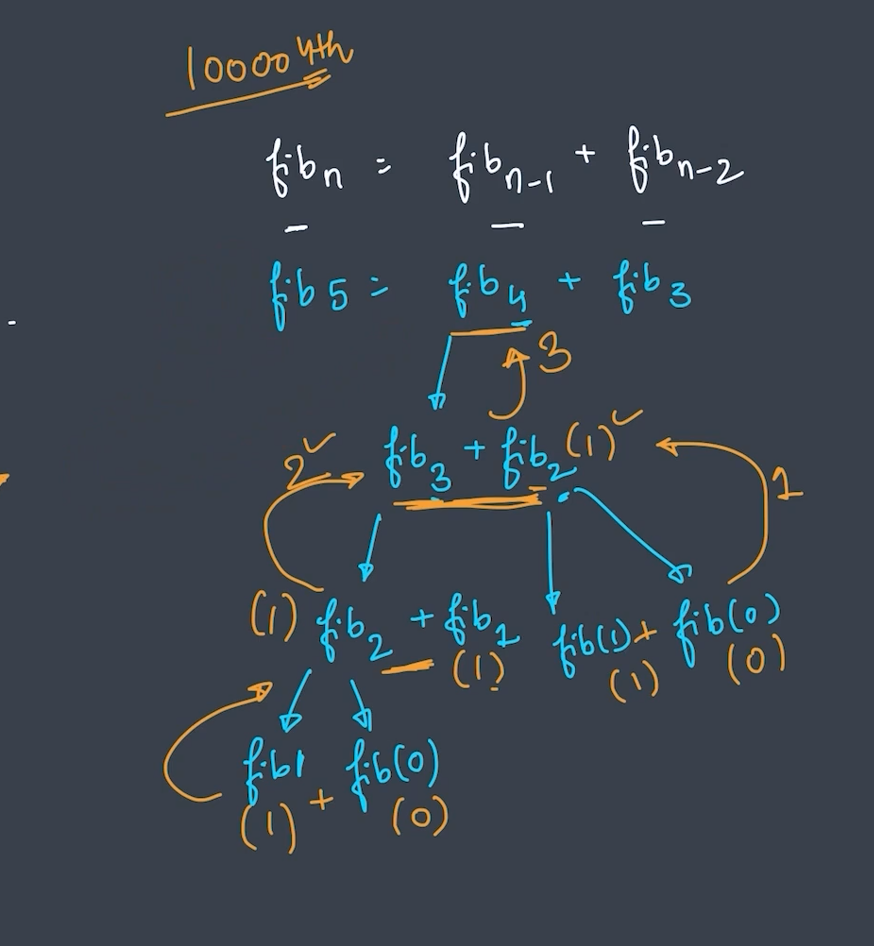 100004th
fibn = fibn-1 + fibn-2
fib5 = fib4 + fib3
3
2 fib3 + fib2 (1) 1
(1) fib2 + fib1 fib(1) + fib(0)
(1) (1) (0)
fib1 fib(0)
(1) + (0)